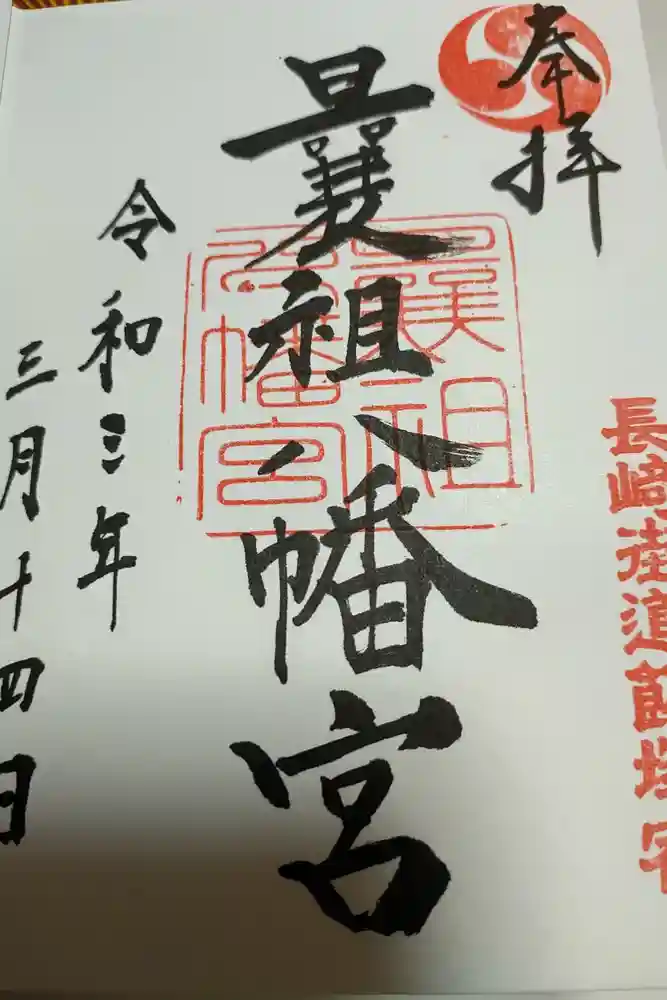 奉拝
長崎街道飯塚宿
曩祖八幡宮
曩祖
八幡宮
令和三年
三月十四日